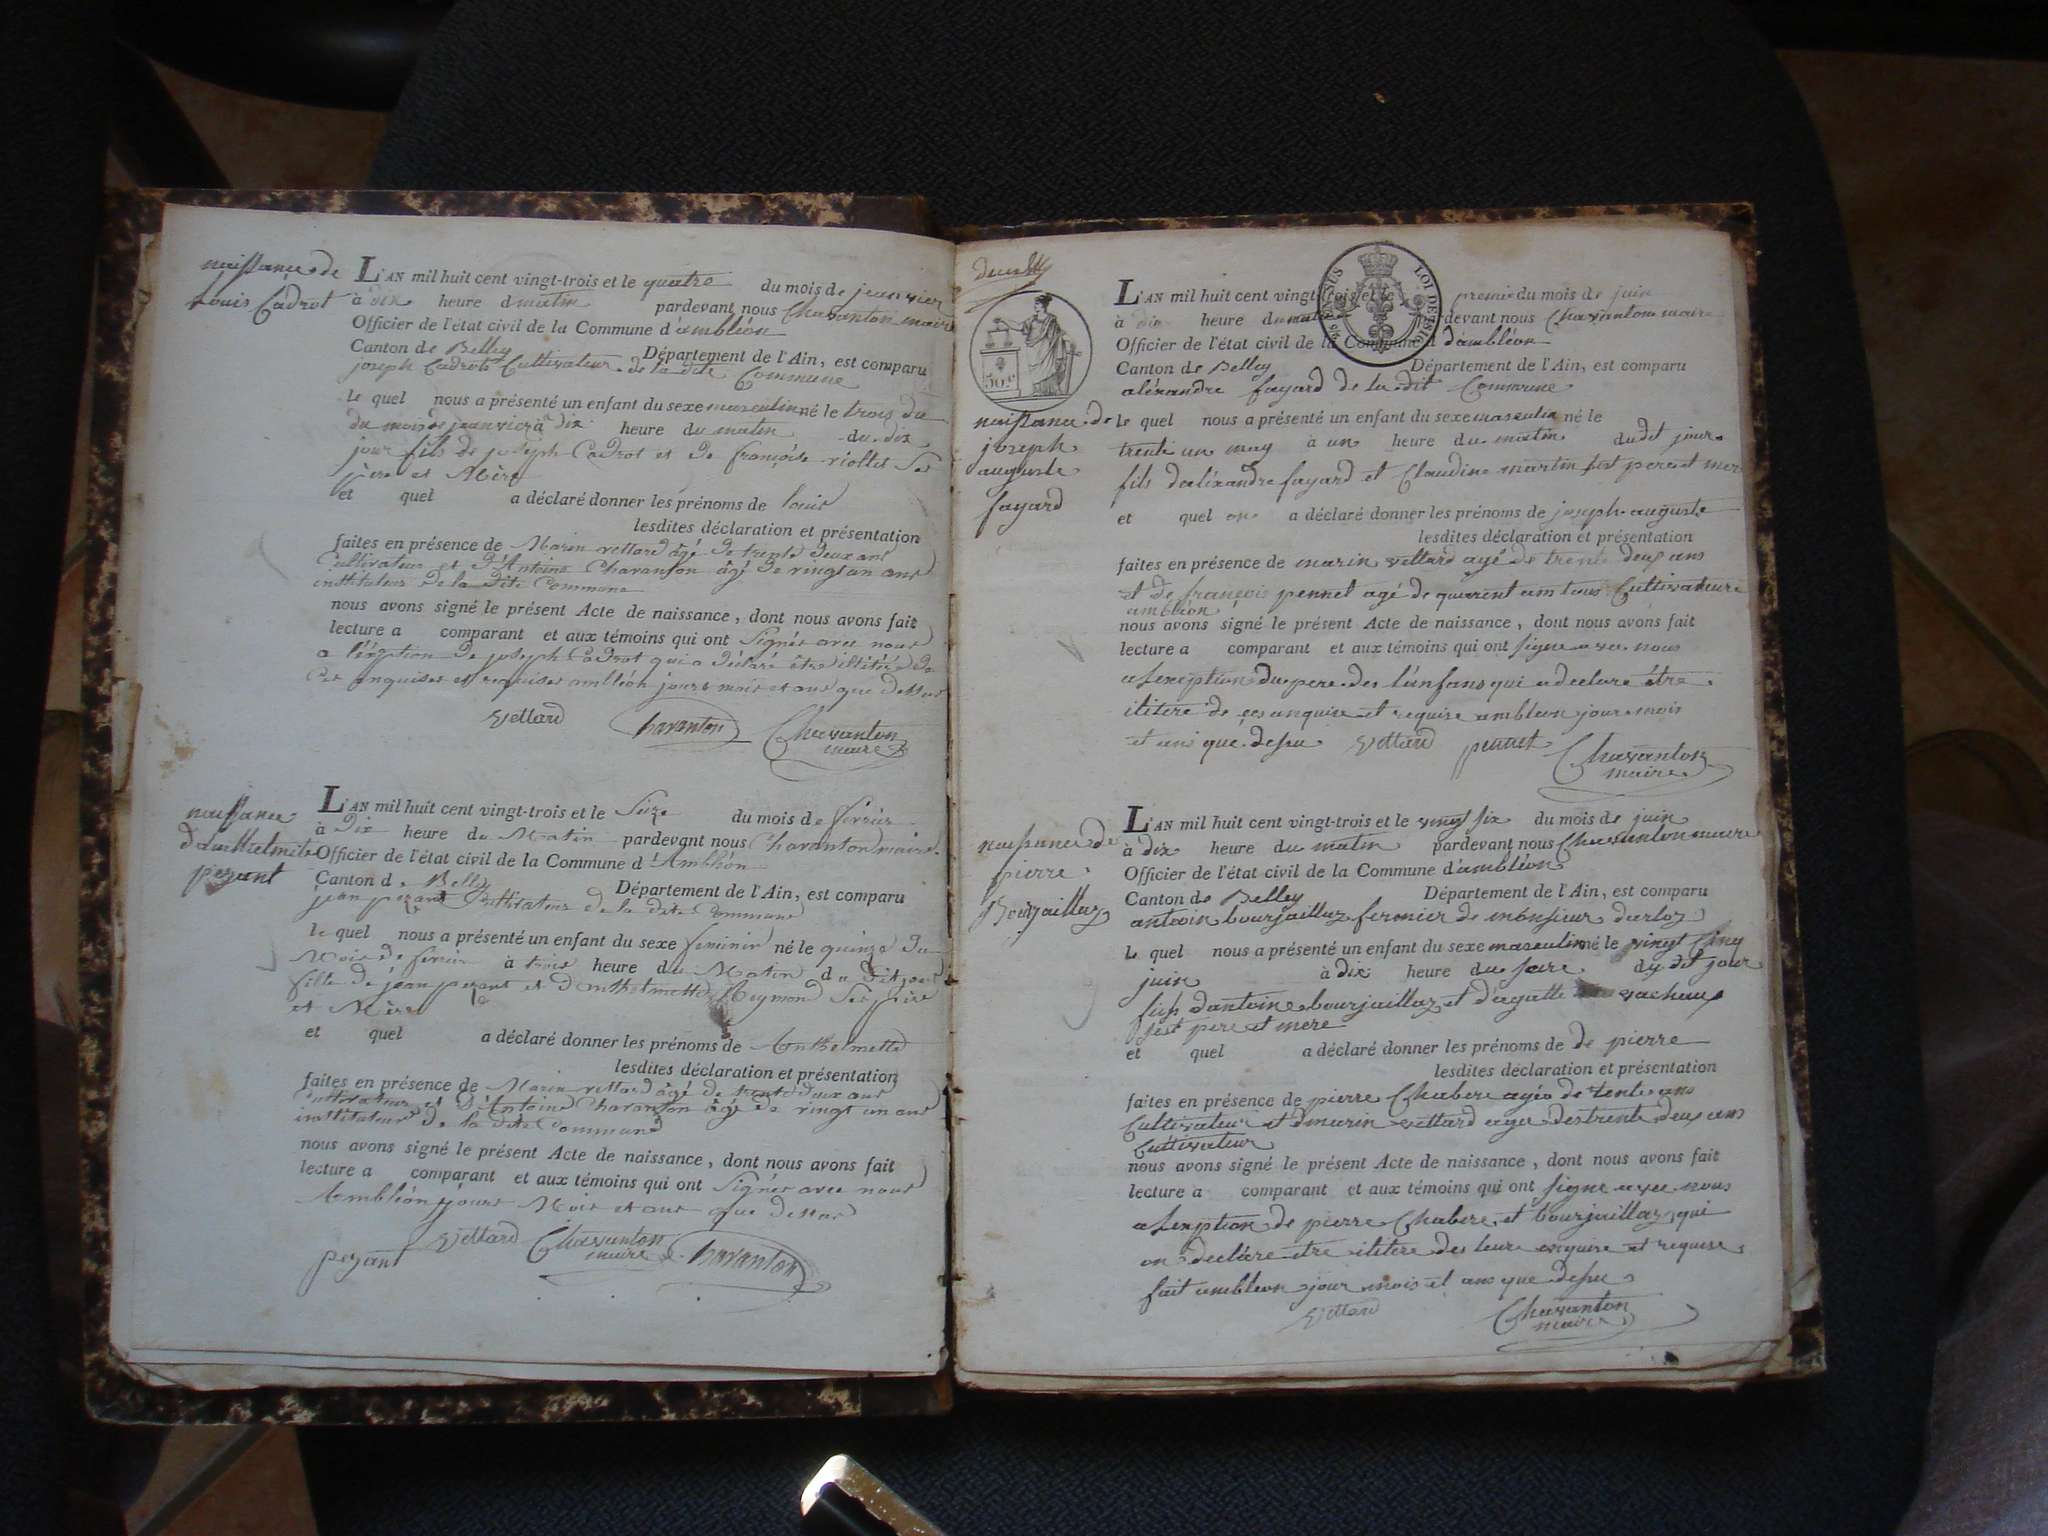 naissance de
Louis Cadrot
L'AN mil huit cent vingt-trois et le quatre du mois de jeanvier
à dix heure d matin pardevant nous Chavanton maire
Officier de l'état civil de la Commune d'ambléon
Canton de Belley Département de l'Ain, est comparu
joseph Cadrot Cultivateur de la dite Commune
le quel nous a présenté un enfant du sexe masculin né le trois du
du mois de jeanvier à dix heure du matin du dix
jour fils de joseph Cadrot et de françoise viollet Ses
père et Mère
et quel a déclaré donner les prénoms de louis
lesdites déclaration et présentation
faites en présence de Marin vettard âgé de trente deux ans
Cultivateur et d'Antoine Chavanton âgé de vingt un ans
instituteur de la dite Commune
nous avons signé le présent Acte de naissance, dont nous avons fait
lecture a comparant et aux témoins qui ont Signés avec nous
a l'éxeption de joseph Cadrot qui a déclaré être illitéré de
Ces enquises et requises ambléon jours mois et ans que dessus
Vettard Chavanton Chavanton
maire
naissance
d'anthelmite
pezant
L'AN mil huit cent vingt-trois et le Seize du mois de février
à Dix heure du Matin pardevant nous Chavanton maire
Officier de l'état civil de la Commune d'Ambléon
Canton d e Belley Département de l'Ain, est comparu
jean pezant Cultivateur de la dite Commune
le quel nous a présenté un enfant du sexe féminin né le quinze du
Mois de février à trois heure du Matin du Dit jour
fille de jean pezant et d'anthelmette Reymond Ses père
et Mère
et quel a déclaré donner les prénoms de Anthelmette
lesdites déclaration et présentation
faites en présence de Marin vettard âgé de trente deux ans
Cultivateur et d'Antoine Chavanton âgé de vingt un ans
instituteur de la dite Commune
nous avons signé le présent Acte de naissance, dont nous avons fait
lecture a comparant et aux témoins qui ont Signés avec nous
Ambléon jours Mois et ans que dessus
pezant Vettard Chavanton maire Chavanton
50 c
LOI DE 1816
naissance de
joseph
auguste
fayard
L'AN mil huit cent vingt-trois et le premie du mois de juin
à dix heure du matin pardevant nous Chavanton maire
Officier de l'état civil de la Commune d d'ambléon
Canton de Belley Département de l'Ain, est comparu
aléxandre fayard de la dit Commune
le quel nous a présenté un enfant du sexe masculin né le
trente un may à un heure du matin du dit jour
fils d'aléxandre fayard et Claudine martin set pere et mere
et quel on a déclaré donner les prénoms de joseph auguste
lesdites déclaration et présentation
faites en présence de marin vettard agé de trente deux ans
et de françois pennet agé de quarent ans tous Cultivateure
ambléon
nous avons signé le présent Acte de naissance, dont nous avons fait
lecture a comparant et aux témoins qui ont signe avec nous
a lexeption du pere des l'anfans qui a declare être
ilitere de ces anquise et requise ambleon jour mois
et ans que desu Vettard pennet Chavanton
maire
naissance de
pierre
Bourjaillaz
L'AN mil huit cent vingt-trois et le vingt six du mois de juin
à dix heure du matin pardevant nous Chavanton maire
Officier de l'état civil de la Commune d'ambléon
Canton de Belley Département de l'Ain, est comparu
antoin bourjaillaz fermier de monsieur
le quel nous a présenté un enfant du sexe masculin né le vingt sinq
juin à dix heure du soire du dit jour
fils d'antoine bourjaillaz et d'agatte vachaux
set pere et mere
et quel a déclaré donner les prénoms de de pierre
lesdites déclaration et présentation
faites en présence de pierre Chabere agée de tente ans
Cultivateur et dmarin vettard age destrente deux ans
Cultivateur
nous avons signé le présent Acte de naissance, dont nous avons fait
lecture a comparant et aux témoins qui ont signe avec nous
a lexeption de pierre Chabere et bourjaillaz qui
on declare etre ilitere de leure enquise et requise
fait ambleon jour mois et ans que desu
Vettard Chavanton
maire